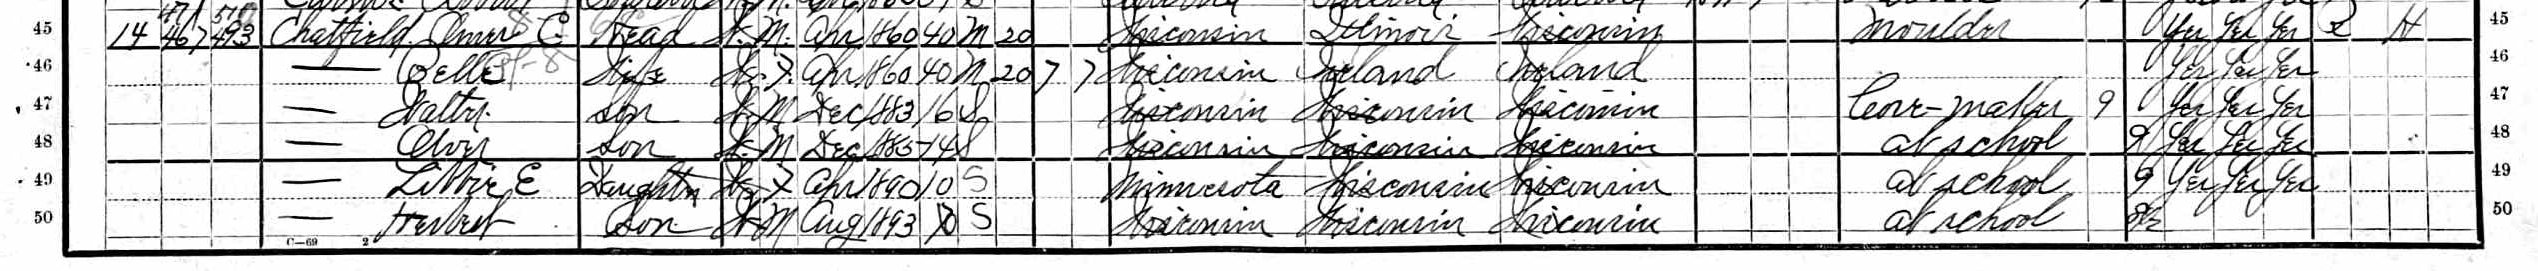 45 14 467 493 Chatfield Omer C. Head W. M. Apr 1860 40 M 20 Wisconsin Illinois Wisconsin Moulder Yes Yes Yes R H 45
46 — Belle Wife W. F. Apr 1860 40 M 20 7 7 Wisconsin Ireland Ireland Yes Yes Yes 46
47 — Walter Son W. M Dec 1883 16 S Wisconsin Wisconsin Wisconsin Core-maker 9 Yes Yes Yes 47
48 — Oliver Son W. M Dec 1885 14 S Wisconsin Wisconsin Wisconsin at school 9 Yes Yes Yes 48
49 — Libbie E Daughter W. F. Apr 1890 10 S Minnesota Wisconsin Wisconsin at school 9 Yes Yes Yes 49
50 — Herbert Son W M Aug 1893 S Wisconsin Wisconsin Wisconsin at school 50
C—69 2